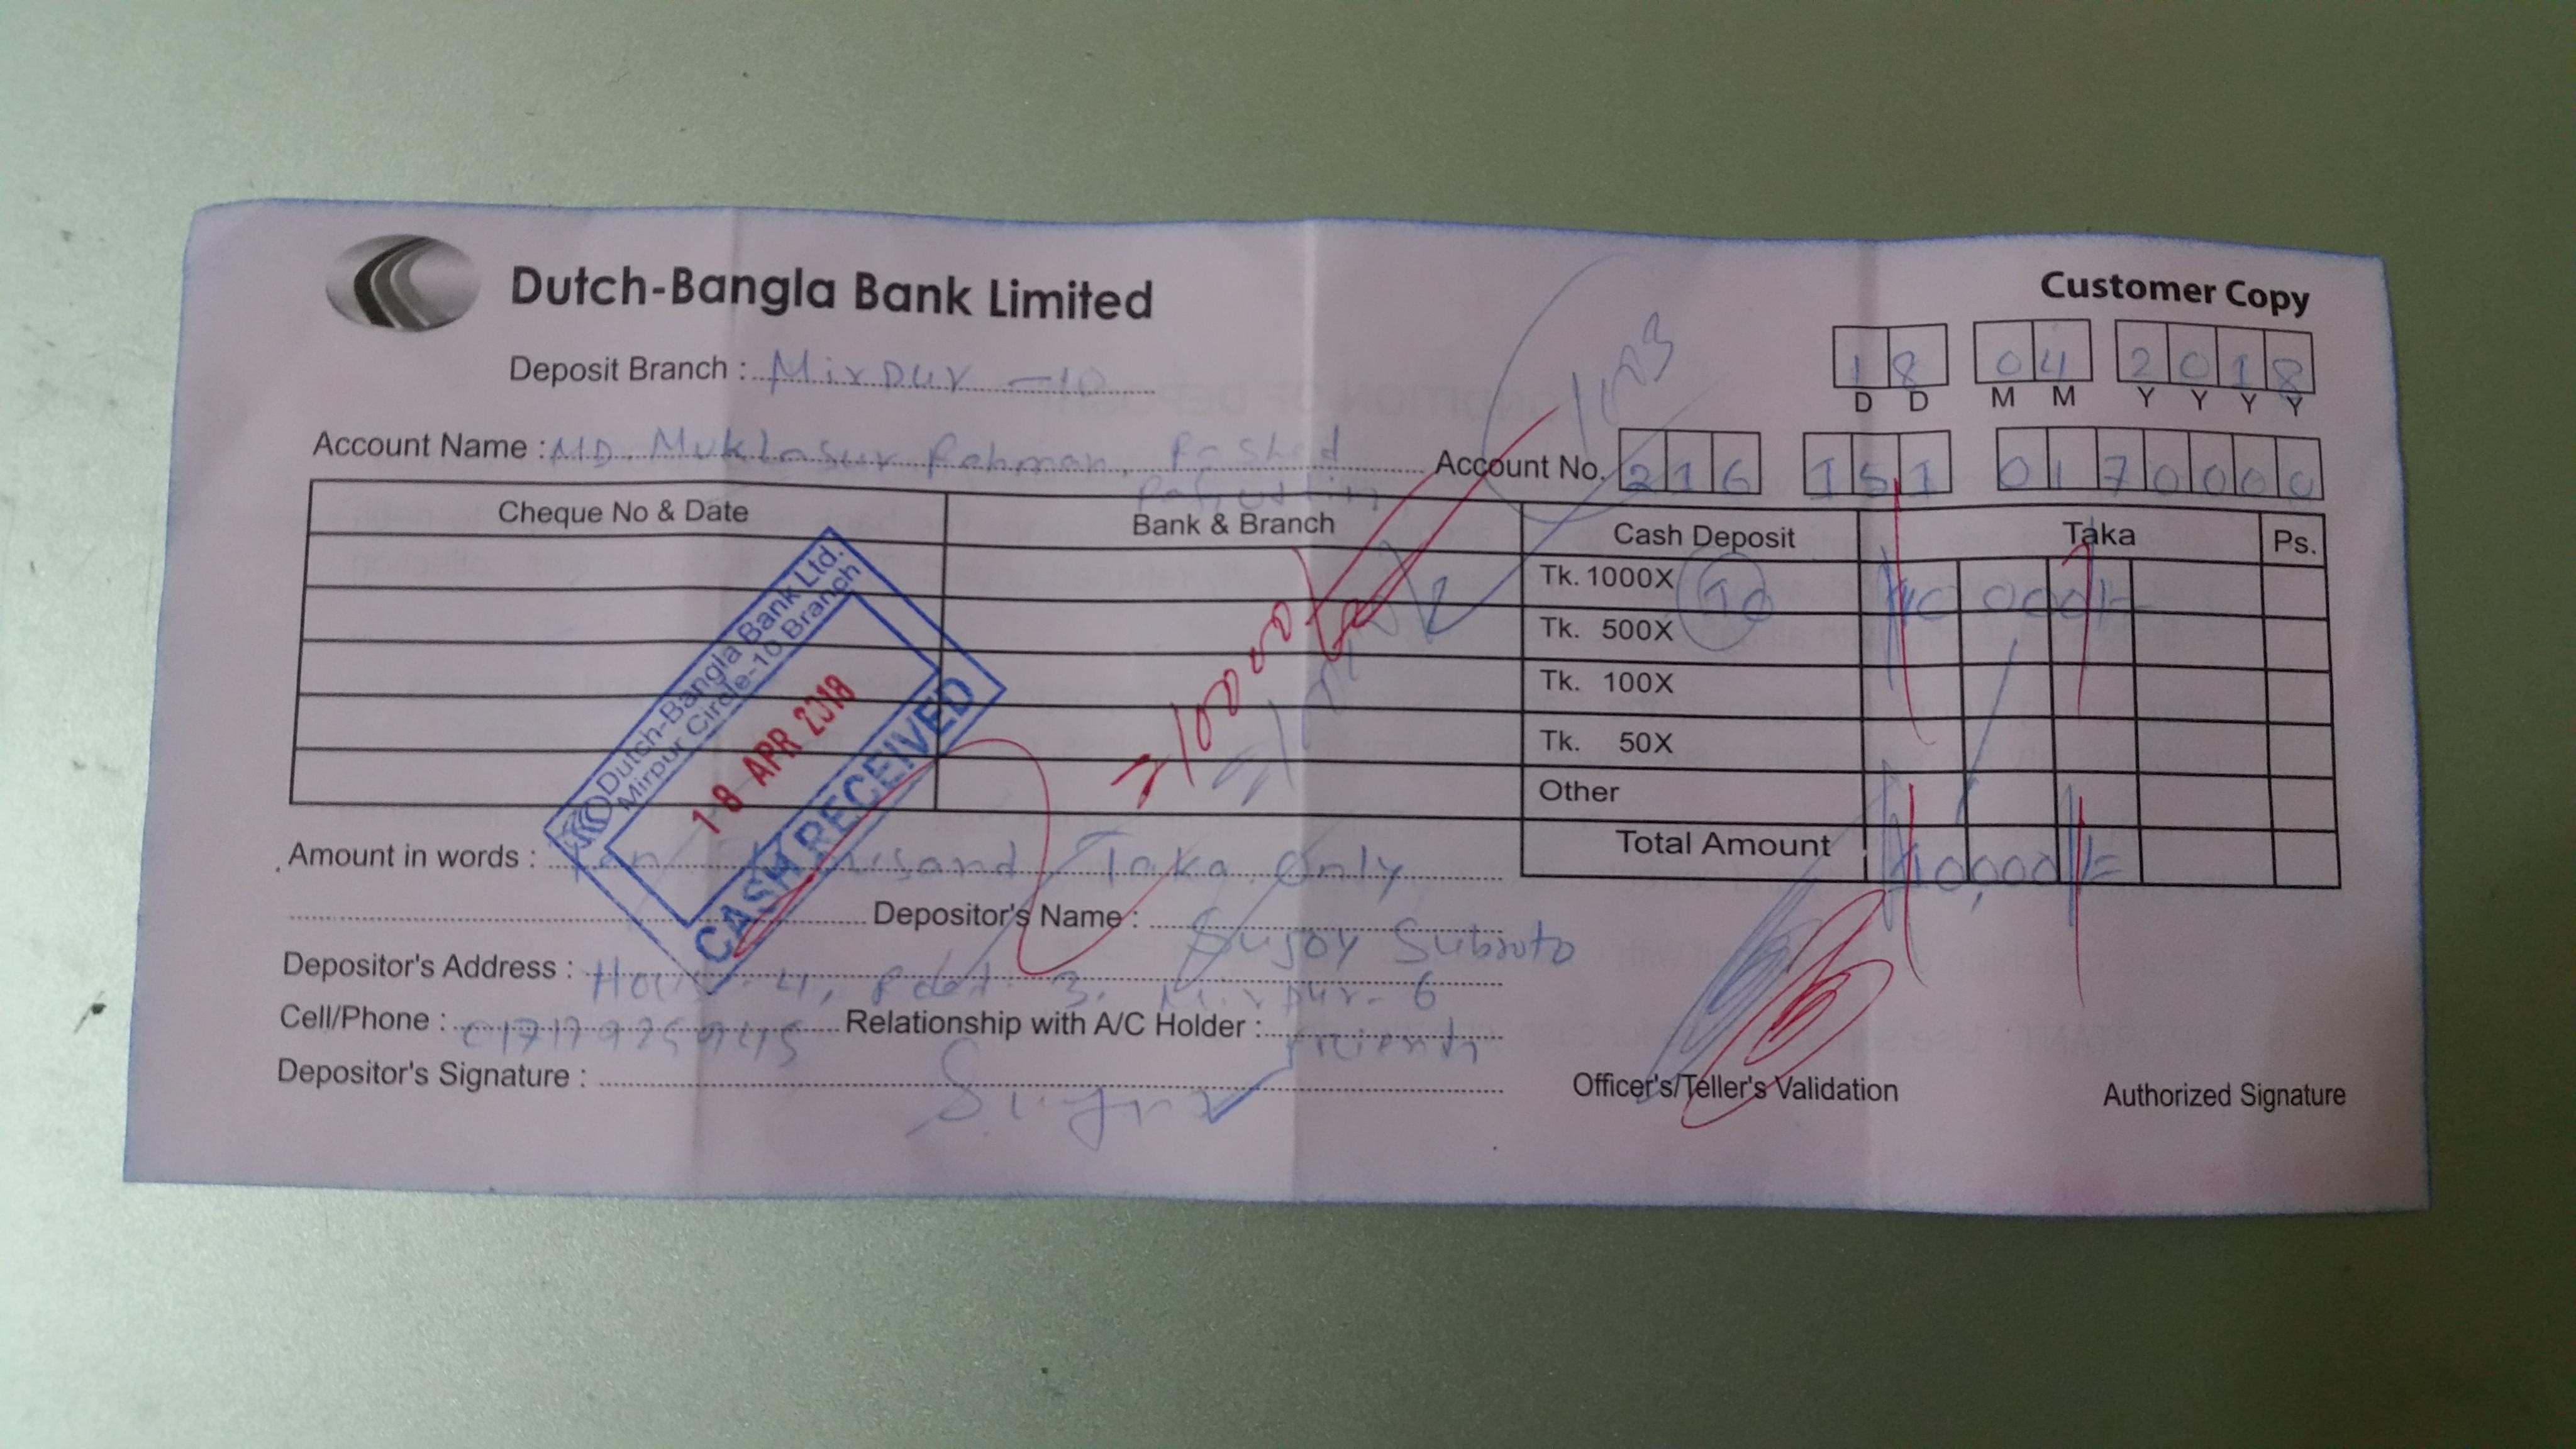 Dutch-Bangla Bank Limited
Customer Copy
Deposit Branch : Mirpur - 10
18 04 2018
D D M M Y Y Y Y
Account Name : MD. Muklasur Rahman, Rashed
Account No. 216 151 0170000
Cheque No & Date Bank & Branch Cash Deposit Taka Ps.
Tk. 1000X 10 10000/-
Tk. 500X
Tk. 100X
Tk. 50X
Other
Total Amount 10,000/=
Dutch-Bangla Bank Ltd.
Mirpur Circle-10 Branch
18 APR 2018
CASH RECEIVED
Amount in words : Ten Thousand Taka Only
Depositor's Name : Sujoy Subroto
Depositor's Address : House 4, Road 3, Mirpur-6
Cell/Phone : Relationship with A/C Holder : Friend
Depositor's Signature :
Officer's/Teller's Validation
Authorized Signature